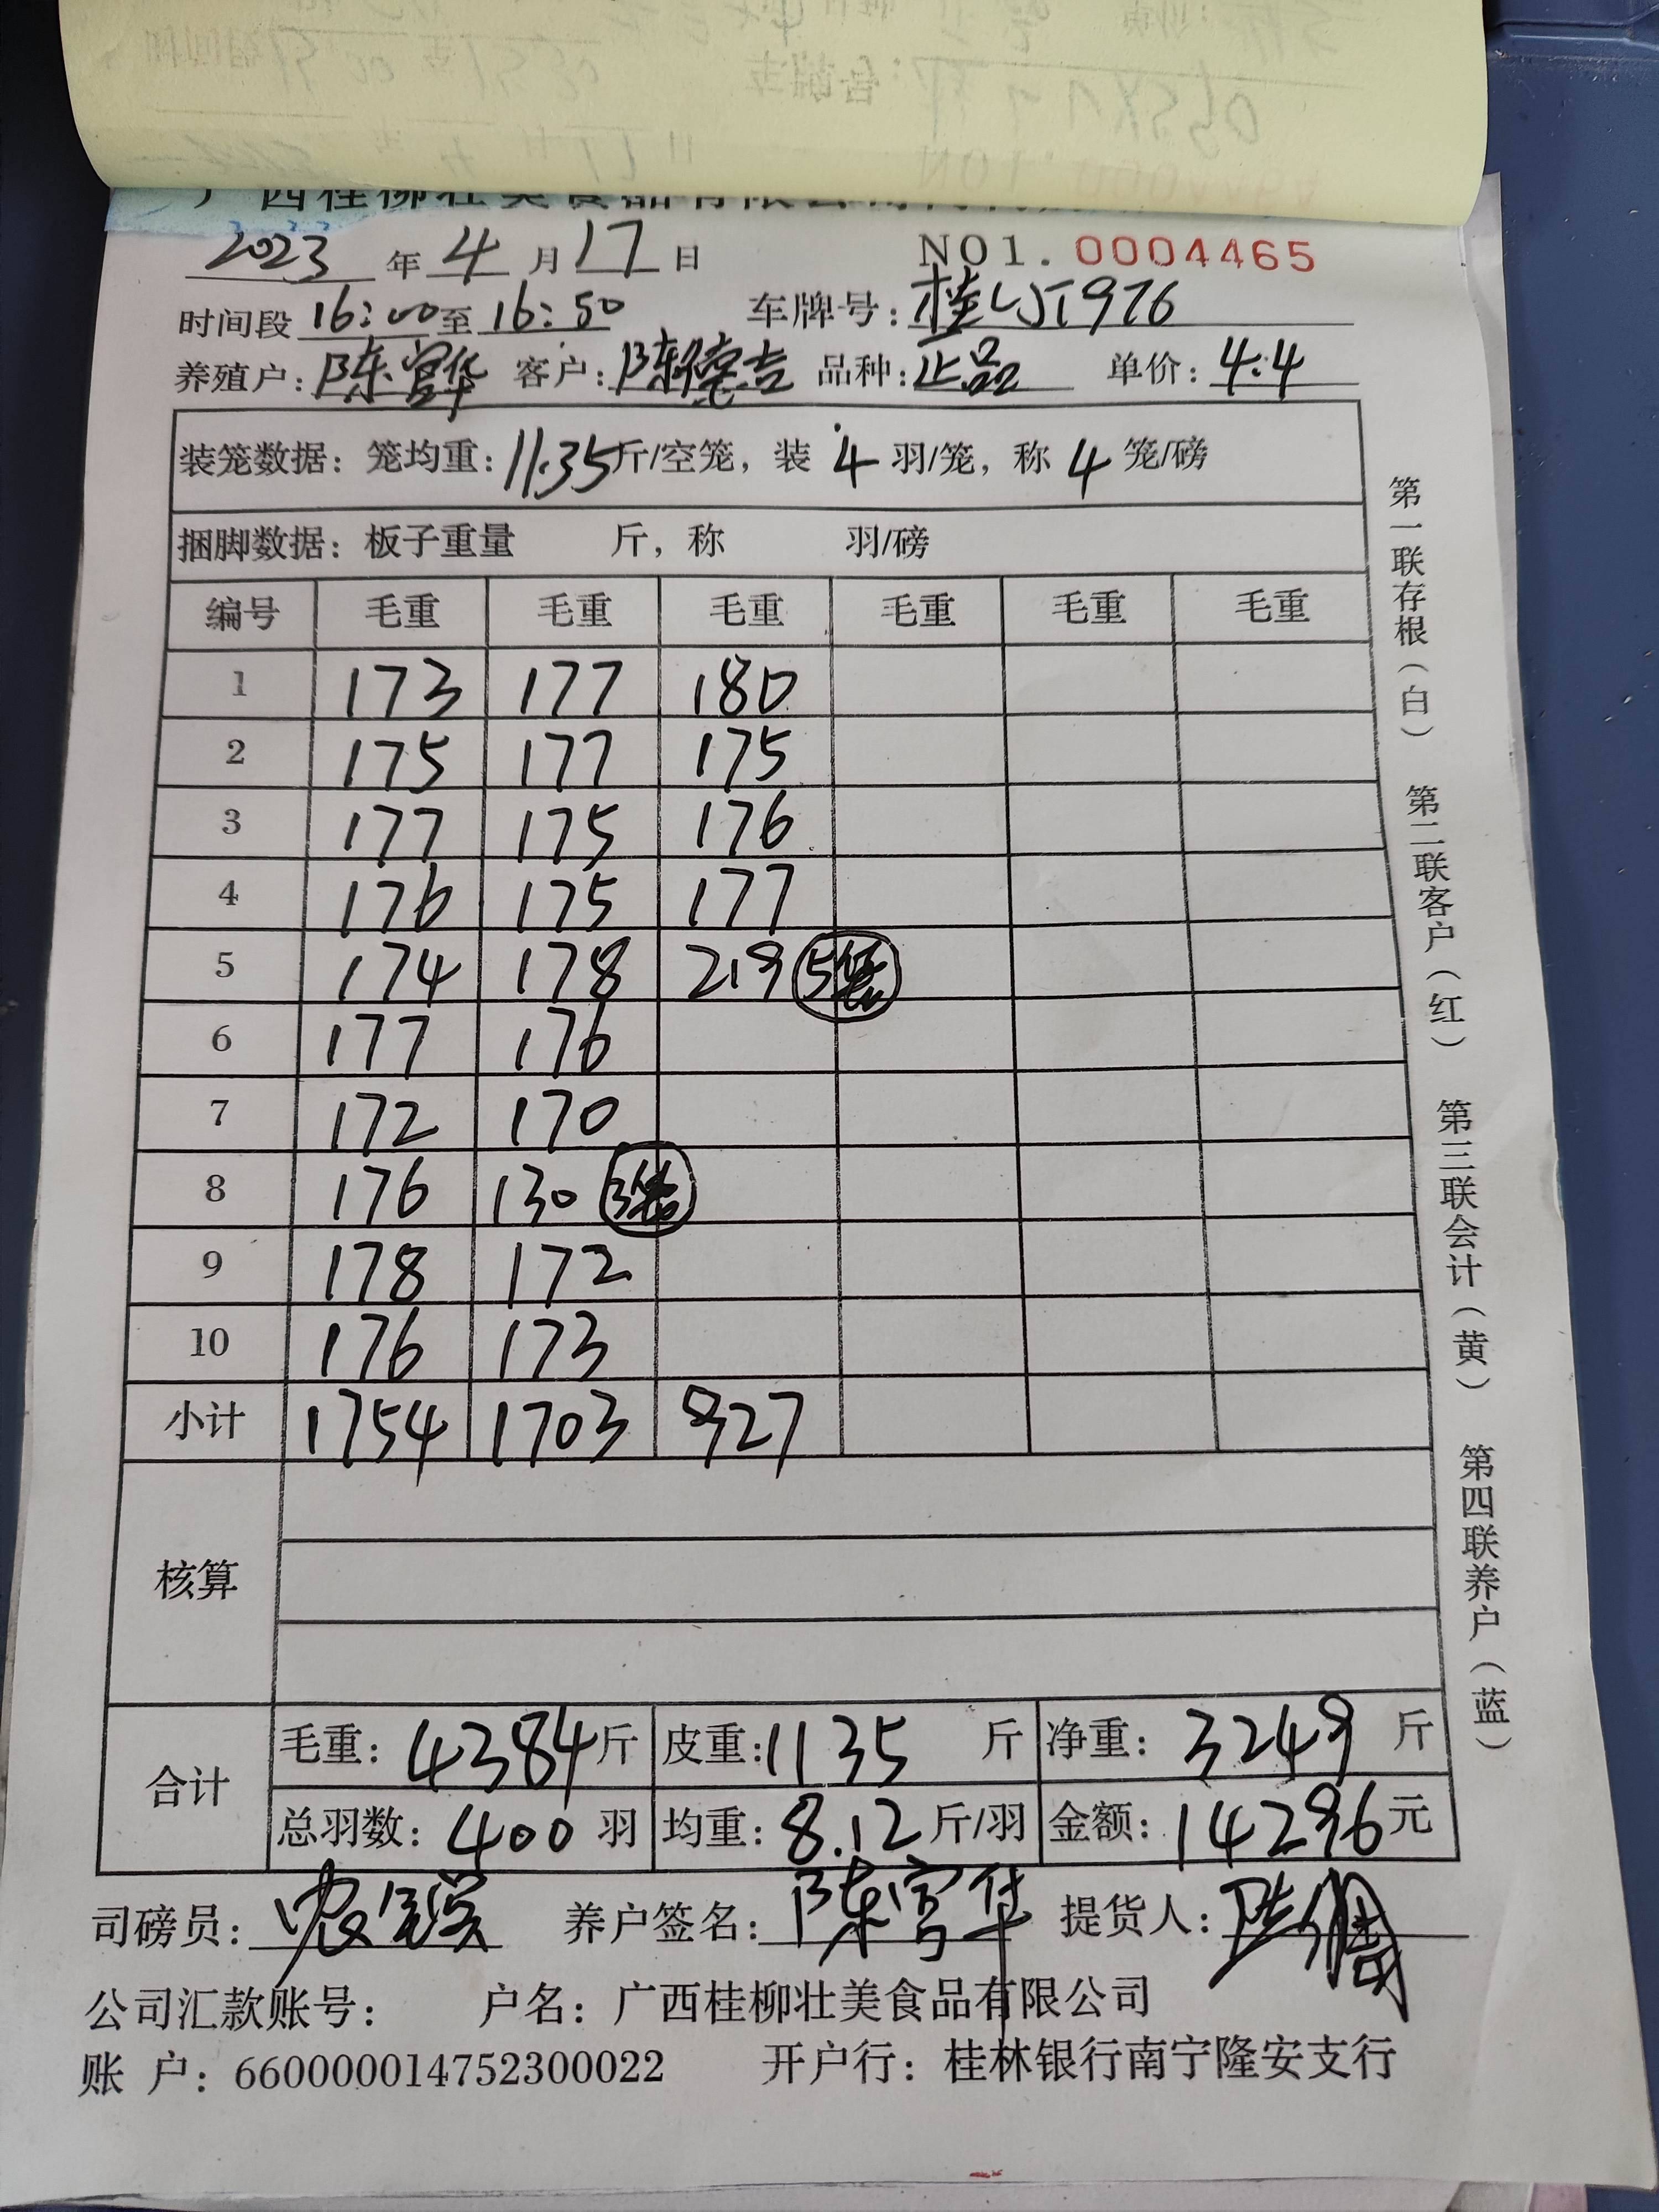 2023 年 4 月 17 日 NO1. 0004465
时间段 16:00 至 16:50 车牌号: 桂LJT976
养殖户: 陈富华 客户: 陈 吉 品种: 正品 单价: 4.4
装笼数据: 笼均重: 11.35 斤/空笼, 装 4 羽/笼, 称 4 笼/磅
捆脚数据: 板子重量 斤, 称 羽/磅
编号 毛重 毛重 毛重 毛重 毛重 毛重
1 173 177 180
2 175 177 175
3 177 175 176
4 176 175 177
5 174 178 219 5笼
6 177 176
7 172 170
8 176 130 3笼
9 178 172
10 176 173
小计 1754 1703 927
核算
合计
毛重: 4384 斤 皮重: 1135 斤 净重: 3249 斤
总羽数: 400 羽 均重: 8.12 斤/羽 金额: 14296 元
司磅员: 养户签名: 陈富华 提货人:
公司汇款账号: 户名: 广西桂柳壮美食品有限公司
账 户: 660000014752300022 开户行: 桂林银行南宁隆安支行
第一联存根（白） 第二联客户（红） 第三联会计（黄） 第四联养户（蓝）